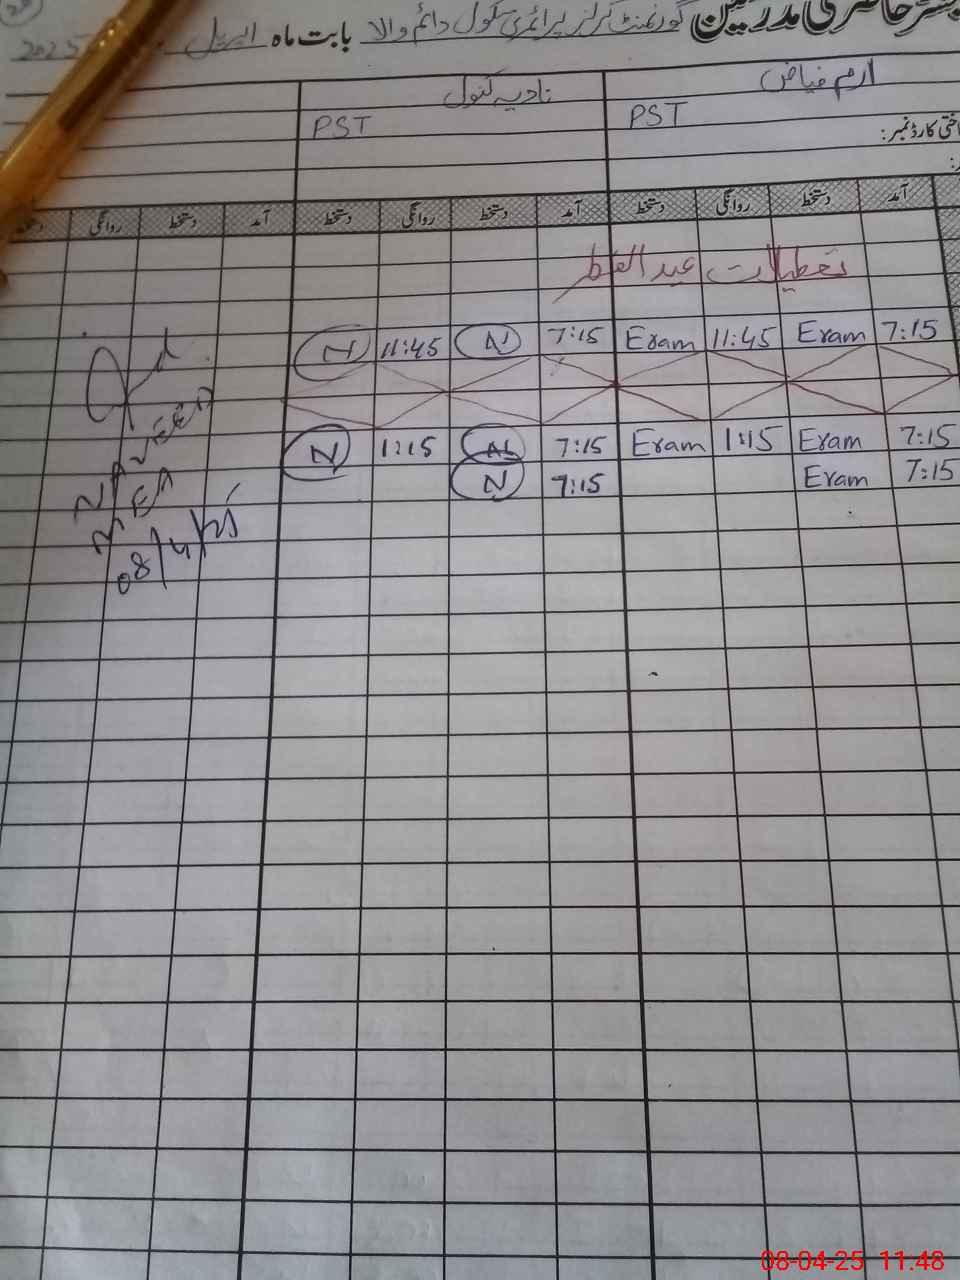 رجسٹر حاضری مدرسین گورنمنٹ گرلز پرائمری سکول دائم والا بابت ماہ اپریل 2025
ارم فیاض نادیہ کنول
PST PST
ختی کارڈ نمبر:
آمد دستخط روانگی دستخط آمد دستخط روانگی دستخط آمد دستخط روانگی دستخط
تعطیلات عید الفطر
7:15 Eram 11:45 Eram 7:15 N 11:45 N
7:15 Eram 1:15 Eram 7:15 N 1:15 N
7:15 Eram 7:15 N
NAVEED
MEA
08/4/25
08-04-25 11:48